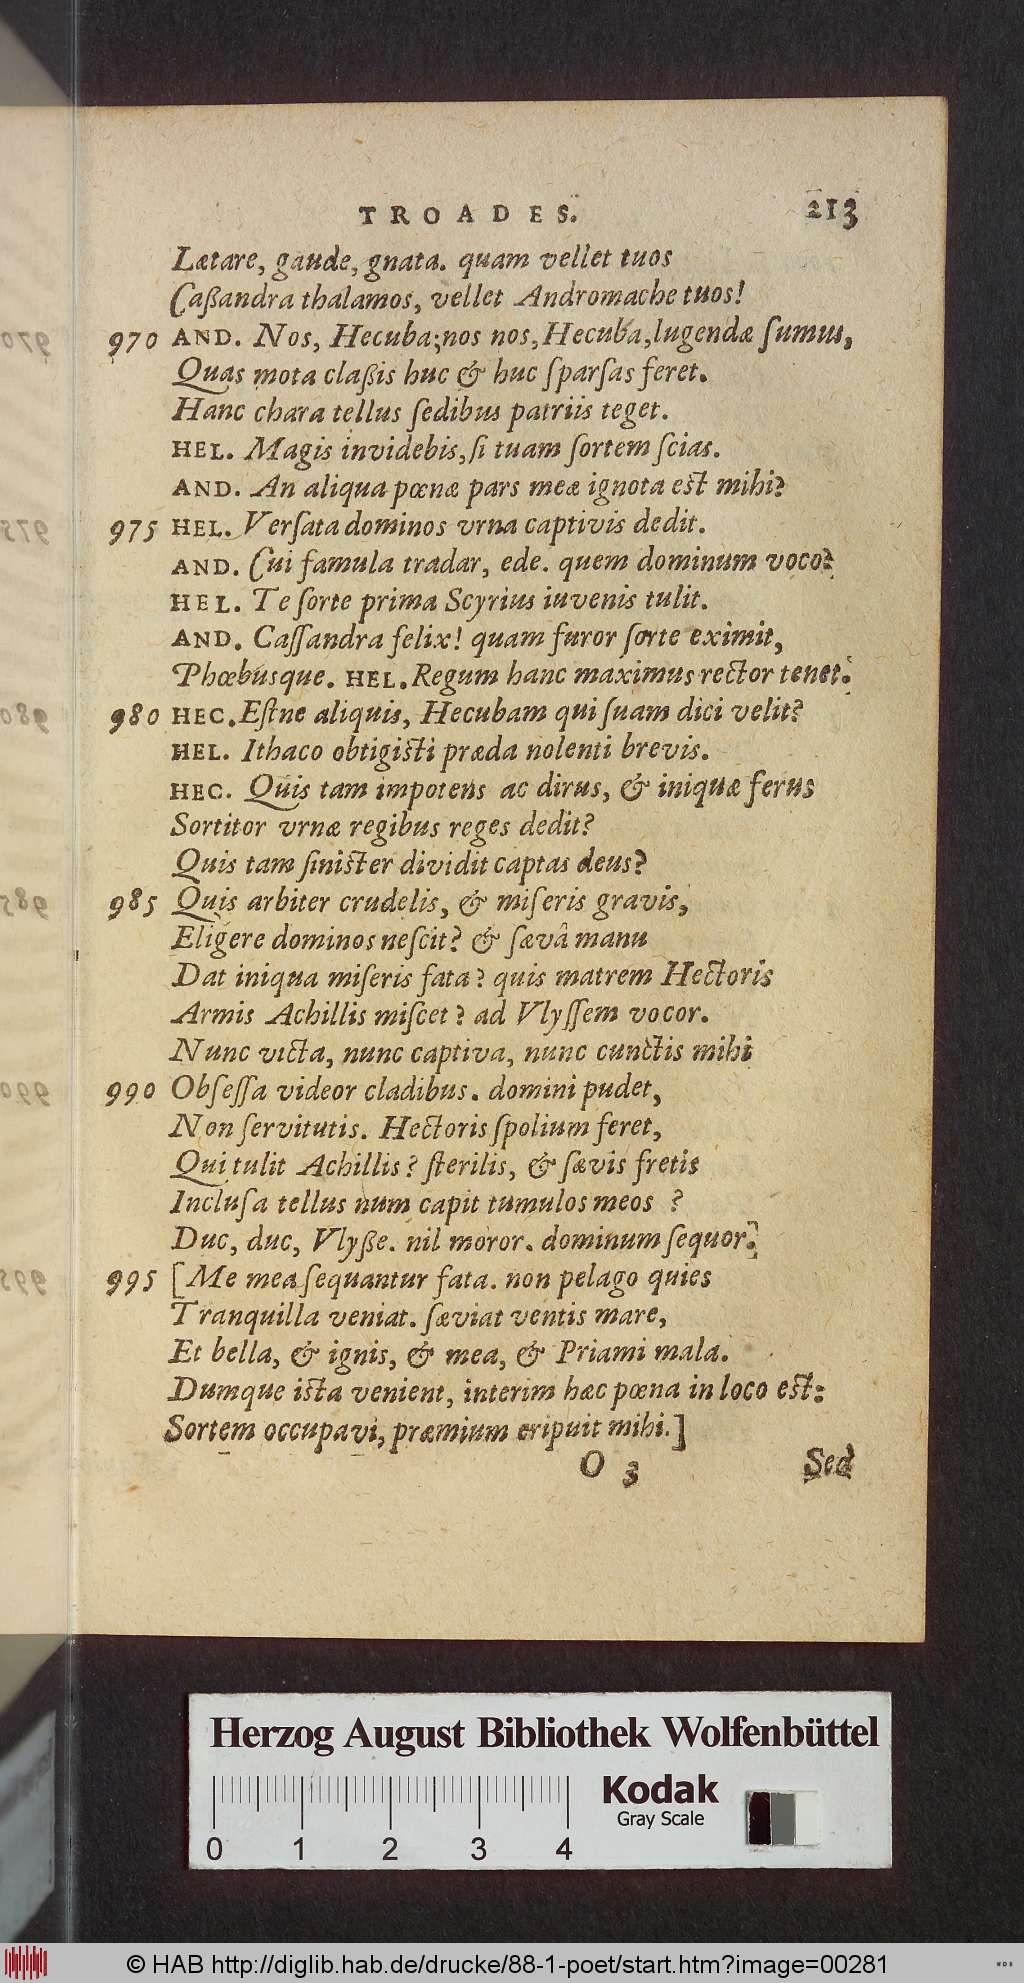 TROADES. 213
Lætare, gaude, gnata. quam vellet tuos
Caßandra thalamos, vellet Andromache tuos!
970 AND. Nos, Hecuba; nos nos, Hecuba, lugendæ ſumus,
Quas mota claßis huc & huc ſparſas feret.
Hanc chara tellus ſedibus patriis teget.
HEL. Magis invidebis, ſi tuam ſortem ſcias.
AND. An aliqua pœnæ pars meæ ignota eſt mihi?
975 HEL. Verſata dominos vrna captivis dedit.
AND. Cui famula tradar, ede. quem dominum voco?
HEL. Te ſorte prima Scyrius iuvenis tulit.
AND. Caſſandra felix! quam furor ſorte eximit,
Phœbusque. HEL. Regum hanc maximus rector tenet.
980 HEC. Eſtne aliquis, Hecubam qui ſuam dici velit?
HEL. Ithaco obtigiſti præda nolenti brevis.
HEC. Quis tam impotens ac dirus, & iniquæ ferus
Sortitor vrnæ regibus reges dedit?
Quis tam ſiniſter dividit captas deus?
985 Quis arbiter crudelis, & miſeris gravis,
Eligere dominos neſcit? & ſævâ manu
Dat iniqua miſeris fata? quis matrem Hectoris
Armis Achillis miſcet? ad Vlyſſem vocor.
Nunc victa, nunc captiva, nunc cunctis mihi
990 Obſeſſa videor cladibus. domini pudet,
Non ſervitutis. Hectoris ſpolium feret,
Qui tulit Achillis? ſterilis, & ſævis fretis
Incluſa tellus num capit tumulos meos ?
Duc, duc, Vlyße. nil moror. dominum ſequor.
995 [Me mea ſequantur fata. non pelago quies
Tranquilla veniat. ſæviat ventis mare,
Et bella, & ignis, & mea, & Priami mala.
Dumque iſta venient, interim hæc pœna in loco eſt:
Sortem occupavi, præmium eripuit mihi.]
O 3 Sed
970
975
980
985
990
995
Herzog August Bibliothek Wolfenbüttel
Kodak
Gray Scale
0 1 2 3 4
© HAB http://diglib.hab.de/drucke/88-1-poet/start.htm?image=00281